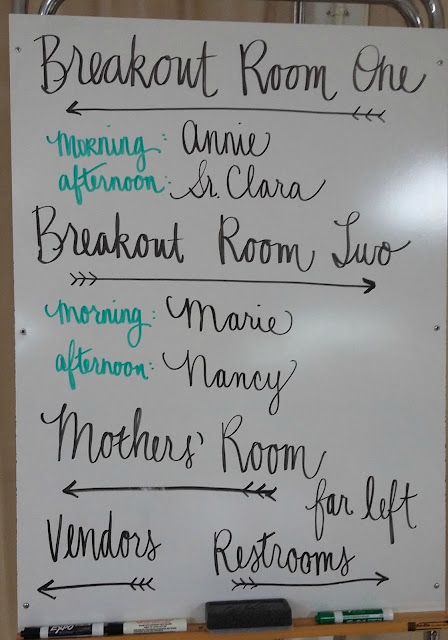 Breakout Room One
Morning: Annie
afternoon: Sr. Clara
Breakout Room Two
Morning: Marie
afternoon: Nancy
Mothers' Room
far left
Vendors Restrooms
EXPO